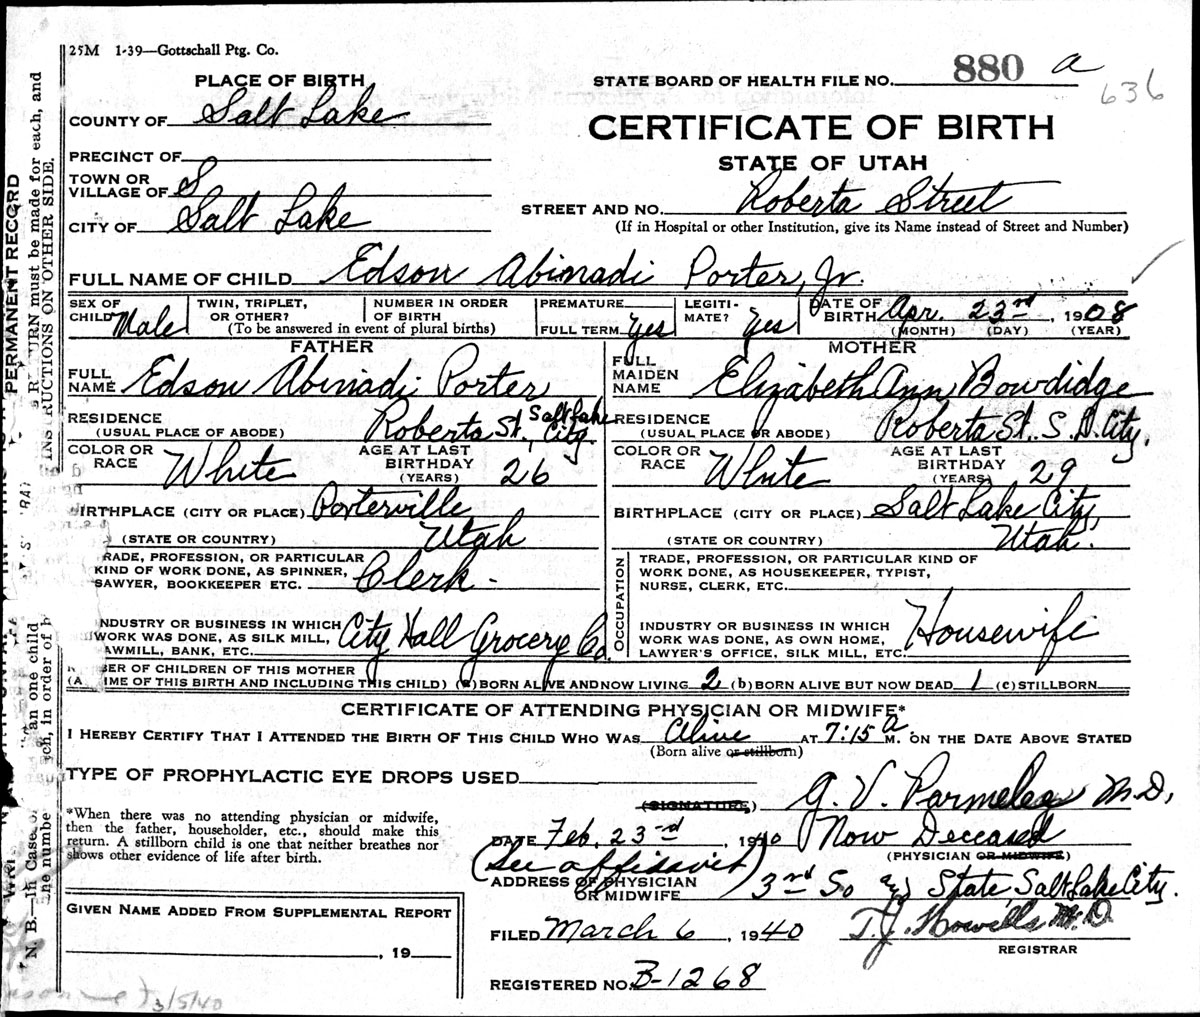 25M 1-39—Gottschall Ptg. Co.
STATE BOARD OF HEALTH FILE NO. 880 a
636
PLACE OF BIRTH
COUNTY OF Salt Lake
CERTIFICATE OF BIRTH
STATE OF UTAH
PRECINCT OF
TOWN OR VILLAGE OF S
CITY OF Salt Lake
STREET AND NO. Roberta Street
(If in Hospital or other Institution, give its Name instead of Street and Number)
FULL NAME OF CHILD Edson Abinadi Porter, Jr.
SEX OF CHILD Male
TWIN, TRIPLET, OR OTHER?
NUMBER IN ORDER OF BIRTH
(To be answered in event of plural births)
PREMATURE
FULL TERM Yes
LEGITIMATE? Yes
DATE OF BIRTH Apr. 23rd, 1908
(MONTH) (DAY) (YEAR)
FATHER
FULL NAME Edson Abinadi Porter
RESIDENCE (USUAL PLACE OF ABODE) Roberta St., Salt Lake City.
COLOR OR RACE White
AGE AT LAST BIRTHDAY (YEARS) 26
BIRTHPLACE (CITY OR PLACE) Porterville
(STATE OR COUNTRY) Utah
RADE, PROFESSION, OR PARTICULAR
KIND OF WORK DONE, AS SPINNER,
SAWYER, BOOKKEEPER ETC. Clerk -
INDUSTRY OR BUSINESS IN WHICH
WORK WAS DONE, AS SILK MILL,
AWMILL, BANK, ETC. City Hall Grocery Co.
MOTHER
FULL MAIDEN NAME Elizabeth Ann Bowdidge
RESIDENCE (USUAL PLACE OR ABODE) Roberta St. S. L. City.
COLOR OR RACE White
AGE AT LAST BIRTHDAY (YEARS) 29
BIRTHPLACE (CITY OR PLACE) Salt Lake City,
(STATE OR COUNTRY) Utah.
OCCUPATION
TRADE, PROFESSION, OR PARTICULAR KIND OF
WORK DONE, AS HOUSEKEEPER, TYPIST,
NURSE, CLERK, ETC.
INDUSTRY OR BUSINESS IN WHICH
WORK WAS DONE, AS OWN HOME,
LAWYER'S OFFICE, SILK MILL, ETC. Housewife
BER OF CHILDREN OF THIS MOTHER
(A IME OF THIS BIRTH AND INCLUDING THIS CHILD) (a) BORN ALIVE AND NOW LIVING 2 (b) BORN ALIVE BUT NOW DEAD 1 (c) STILLBORN
CERTIFICATE OF ATTENDING PHYSICIAN OR MIDWIFE*
I HEREBY CERTIFY THAT I ATTENDED THE BIRTH OF THIS CHILD WHO WAS Alive AT 7:15 A M. ON THE DATE ABOVE STATED
(Born alive or stillborn)
TYPE OF PROPHYLACTIC EYE DROPS USED
*When there was no attending physician or midwife,
then the father, householder, etc., should make this
return. A stillborn child is one that neither breathes nor
shows other evidence of life after birth.
(SIGNATURE) G. V. Parmelee M.D.,
DATE Feb. 23rd, 1940 Now Deceased
(PHYSICIAN OR MIDWIFE)
(See affidavit)
ADDRESS OF PHYSICIAN OR MIDWIFE 3rd So and State, Salt Lake City.
GIVEN NAME ADDED FROM SUPPLEMENTAL REPORT
, 19
FILED March 6, 1940 T. J. Howells M.D.
REGISTRAR
REGISTERED NO. B-1268
3/5/40
PERMANENT RECORD
URN must be made for each, and
INSTRUCTIONS ON OTHER SIDE.
N. B.—In Case of
an one child
in order of b
he numbe